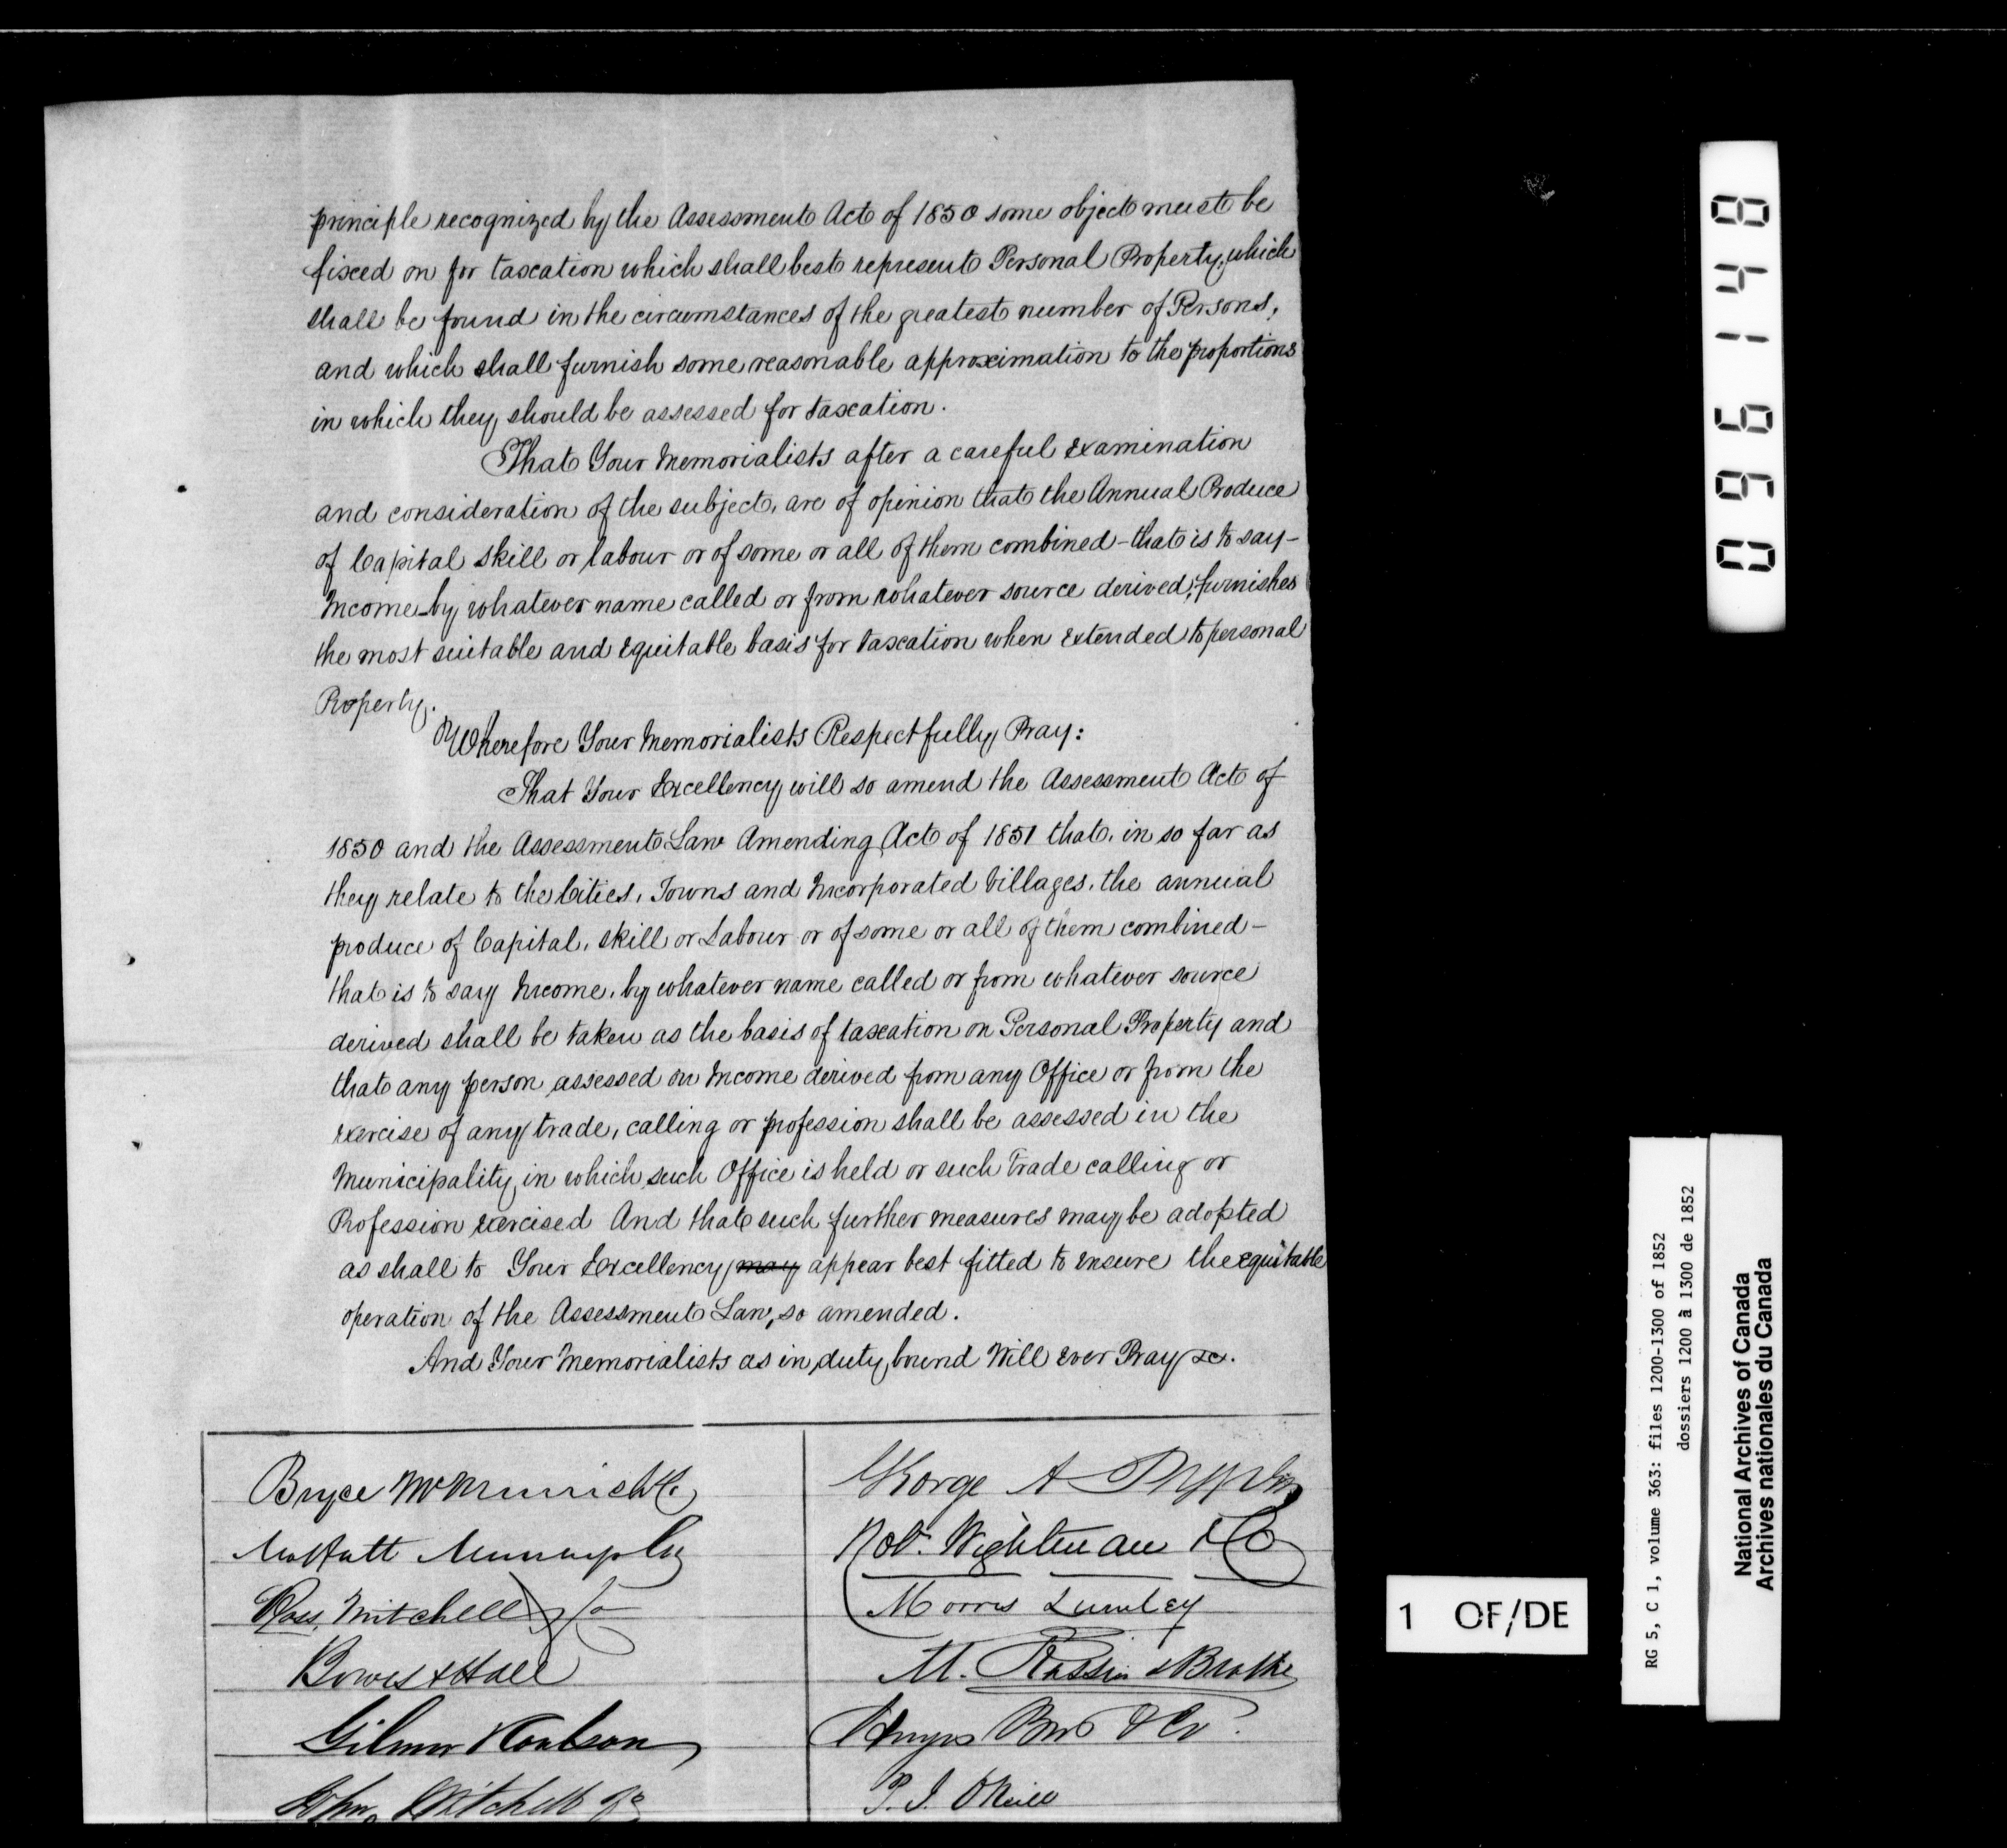 principle recognized by the Assessment Act of 1850 some object must be
fixed on for taxation which shall best represent Personal Property, which
shall be found in the circumstances of the greatest number of Persons,
and which shall furnish some reasonable approximation to the proportions
in which they should be assessed for taxation.
That Your Memorialists after a careful Examination
and consideration of the subject, are of opinion that the Annual Produce
of Capital skill or labour or of some or all of them combined - that is to say -
Income by whatever name called or from whatever source derived, furnishes
the most suitable and Equitable basis for taxation when Extended to personal
Property.
Wherefore Your Memorialists Respectfully Pray:
That Your Excellency will so amend the Assessment Act of
1850 and the Assessment Law Amending Act of 1851 that, in so far as
they relate to the Cities, Towns and Incorporated Villages, the annual
produce of Capital, skill or Labour or of some or all of them combined -
that is to say Income, by whatever name called or from whatever source
derived shall be taken as the basis of taxation on Personal Property and
that any person assessed on Income derived from any Office or from the
Exercise of any trade, calling or profession shall be assessed in the
Municipality in which such Office is held or such Trade calling or
Profession Exercised And that such further measures may be adopted
as shall to Your Excellency may appear best fitted to Ensure the equitable
operation of the Assessment Law, so amended.
And Your Memorialists as in duty bound Will Ever Pray &c.
Bryce McMurrich & Co
Moffatt Murray & Co
Ross Mitchell & Co
Bowes & Hall
Gilmor & Coulson
John Mitchell & Co
George A
Robt. Wightman & Co
Morris Lumley
M. Rossin & Brothers
Bros & Co.
P. J. O'Neill
096148
1 OF/DE
RG 5, C 1, volume 363: files 1200-1300 of 1852
dossiers 1200 à 1300 de 1852
National Archives of Canada
Archives nationales du Canada